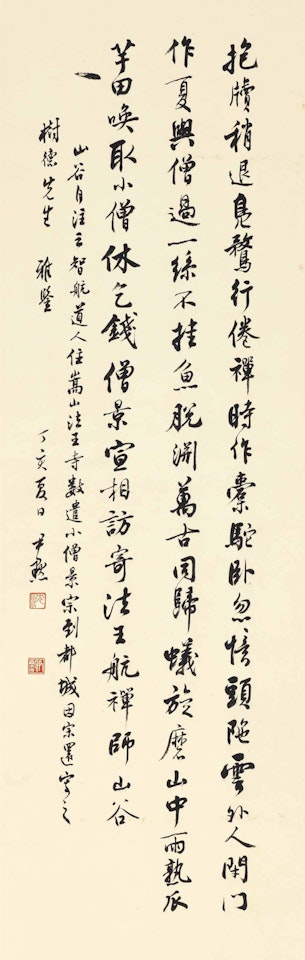 抱牘稍退鳧鶩行倦禪時作橐駝卧忽憶頭陀雲外人閉門
作夏與僧過一絲不挂魚脫淵萬古同歸蟻旋磨山中雨熟瓜
芋田喚取小僧休乞錢僧景宣相訪寄法王航禪師山谷
山谷自注云智航道人住嵩山法王寺數遣小僧景宗到都城因宗還寄之
樹德先生 雅鑒 丁亥夏日 尹默